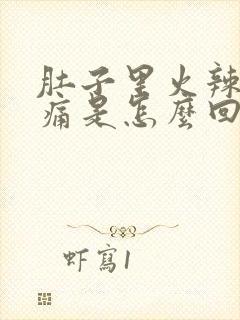 肚子里火辣
痛是怎麼回
虾寫1